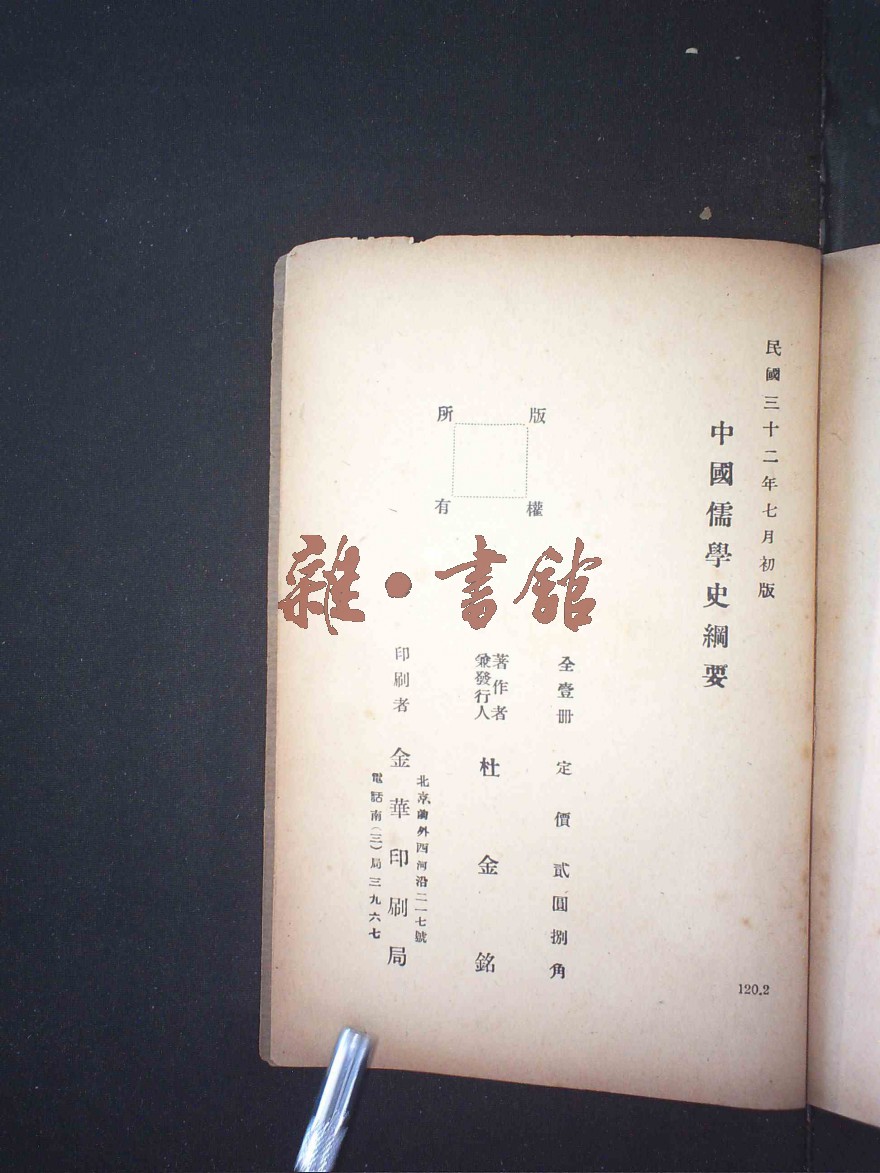 民國三十二年七月初版
中國儒學史綱要
版權所有
全壹冊 定價 貳圓捌角
著作者
兼發行人
杜金銘
印刷者 金華印刷局
北京前外西河沿二一七號
電話南(三)局三九六七
120.2
雜·書館